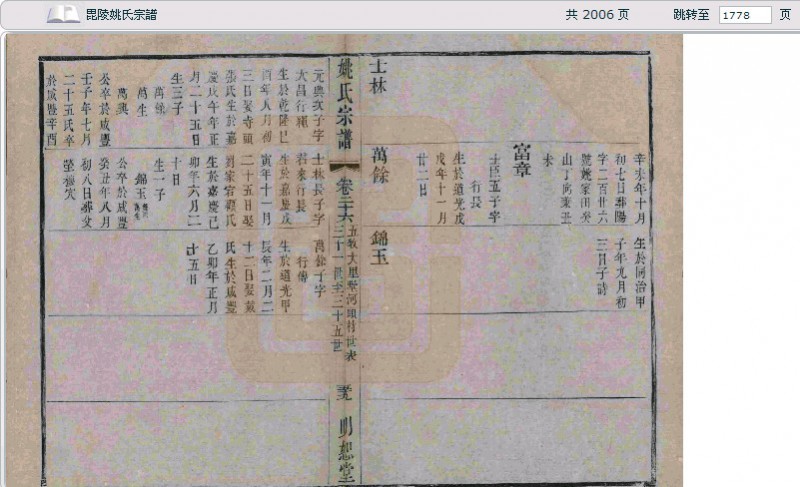 毘陵姚氏宗譜
共 2006 页
跳转至 1778 页
辛未年十月
初七日葬陽
字二百廿六
號姚家田癸
山丁向兼丑
未
生於同治甲
子年九月初
三日子詩
富章
士臣五子字
行長
生於道光戊
戌年十一月
廿二日
士林
萬餘
錦玉
姚氏宗譜
卷二十六
五牧大墅河頭村世表
三十一世至三十五世
明恕堂
元興次子字
大昌行
生於乾隆己
酉年八月初
三日娶寺頭
張氏生於嘉
慶戊午年正
月二十五日
生三子
萬餘
萬生
萬興
公卒於咸豐
壬子年七月
二十五氏卒
於咸豐辛酉
士林長子字
君來行長
生於嘉慶戊
寅年十一月
二十五日娶
劉家宕顧氏
生於嘉慶己
卯年六月二
十日
生一子
錦玉
公卒於咸豐
癸丑年八月
初八日葬父
塋穆穴
萬餘子字
行傳
生於道光甲
辰年二月二
十二日娶戴
氏生於咸豐
乙卯年正月
廿五日